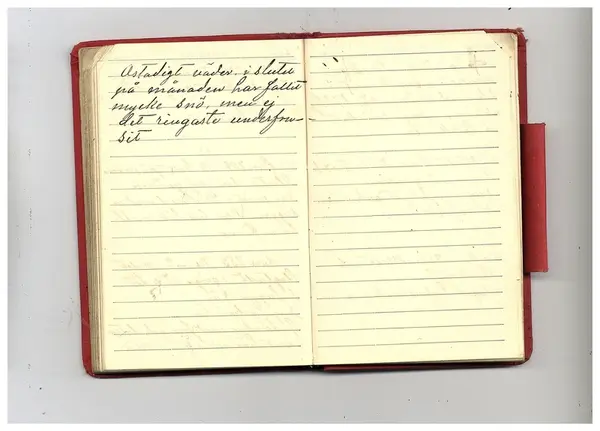 Ostadigt väder, i slutet
på månaden har fallit
mycke snö, men ej
det ringaste underfru-
sit